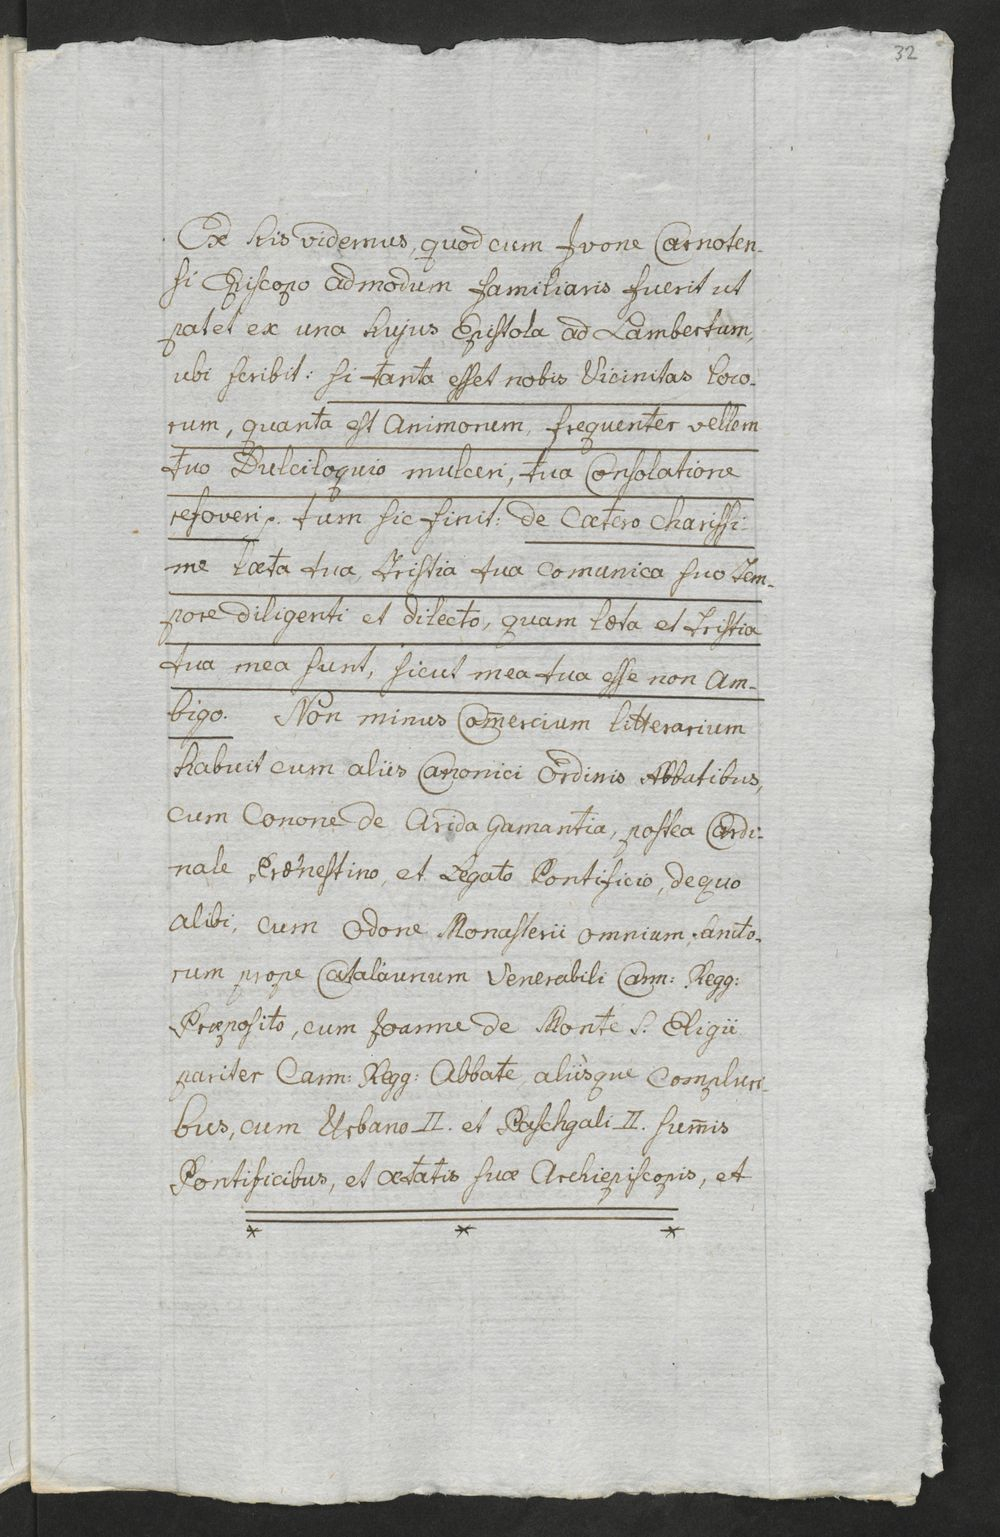 32
Ex his videmus, quod cum Jvone Carnoten-
si Episcopo admodum familiaris fuerit ut
patet ex una hujus Epistola ad Lambertum,
ubi scribit: si tanta esset nobis Vicinitas loco-
rum, quanta est Animorum, frequenter vellem
tuo Dulciloquio mulceri, tua Consolatione
refoveri. tum sic finit: de Cætero Charissi-
me læta tua, Tristia tua comunica suo Tem-
pore diligenti et dilecto, quam læta et Tristia
tua mea sunt, sicut mea tua esse non Am-
bigo. Non minus Com̄ercium litterarium
habuit cum aliis Canonici Ordinis Abbatibus,
cum Conone de Arida Gamantia, postea Cardi-
nale Prænestino, et Legato Pontificio, de quo
alibi, cum Odone Monasterii omnium Sancto-
rum prope Catalaunum Venerabili Cann: Regg:
Præposito, cum Joanne de Monte S. Eligii
pariter Cann: Regg: Abbate, aliisque Compluri-
bus, cum Urbano II. et Paschgali II. sum̄is
Pontificibus, et ætatis suæ Archiepiscopis, et